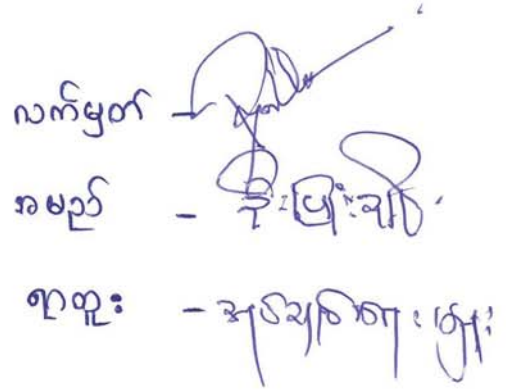 လက်မှတ် -
အမည် - ဦးဖြိုးချစ်
ရာထူး - အုပ်ချုပ်ရေးမှူး